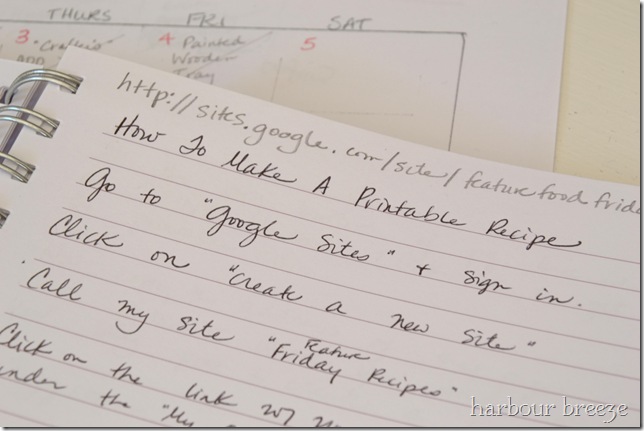 THURS FRI SAT
3 4 Painted 5
Wooden
Tray
http://sites.google.com/site/featurefoodfrid
How To Make A Printable Recipe
Go to "Google Sites" + sign in.
Click on "create a new site"
Call my site "Feature Friday Recipes"
Click on the link
under the "My
harbour breeze